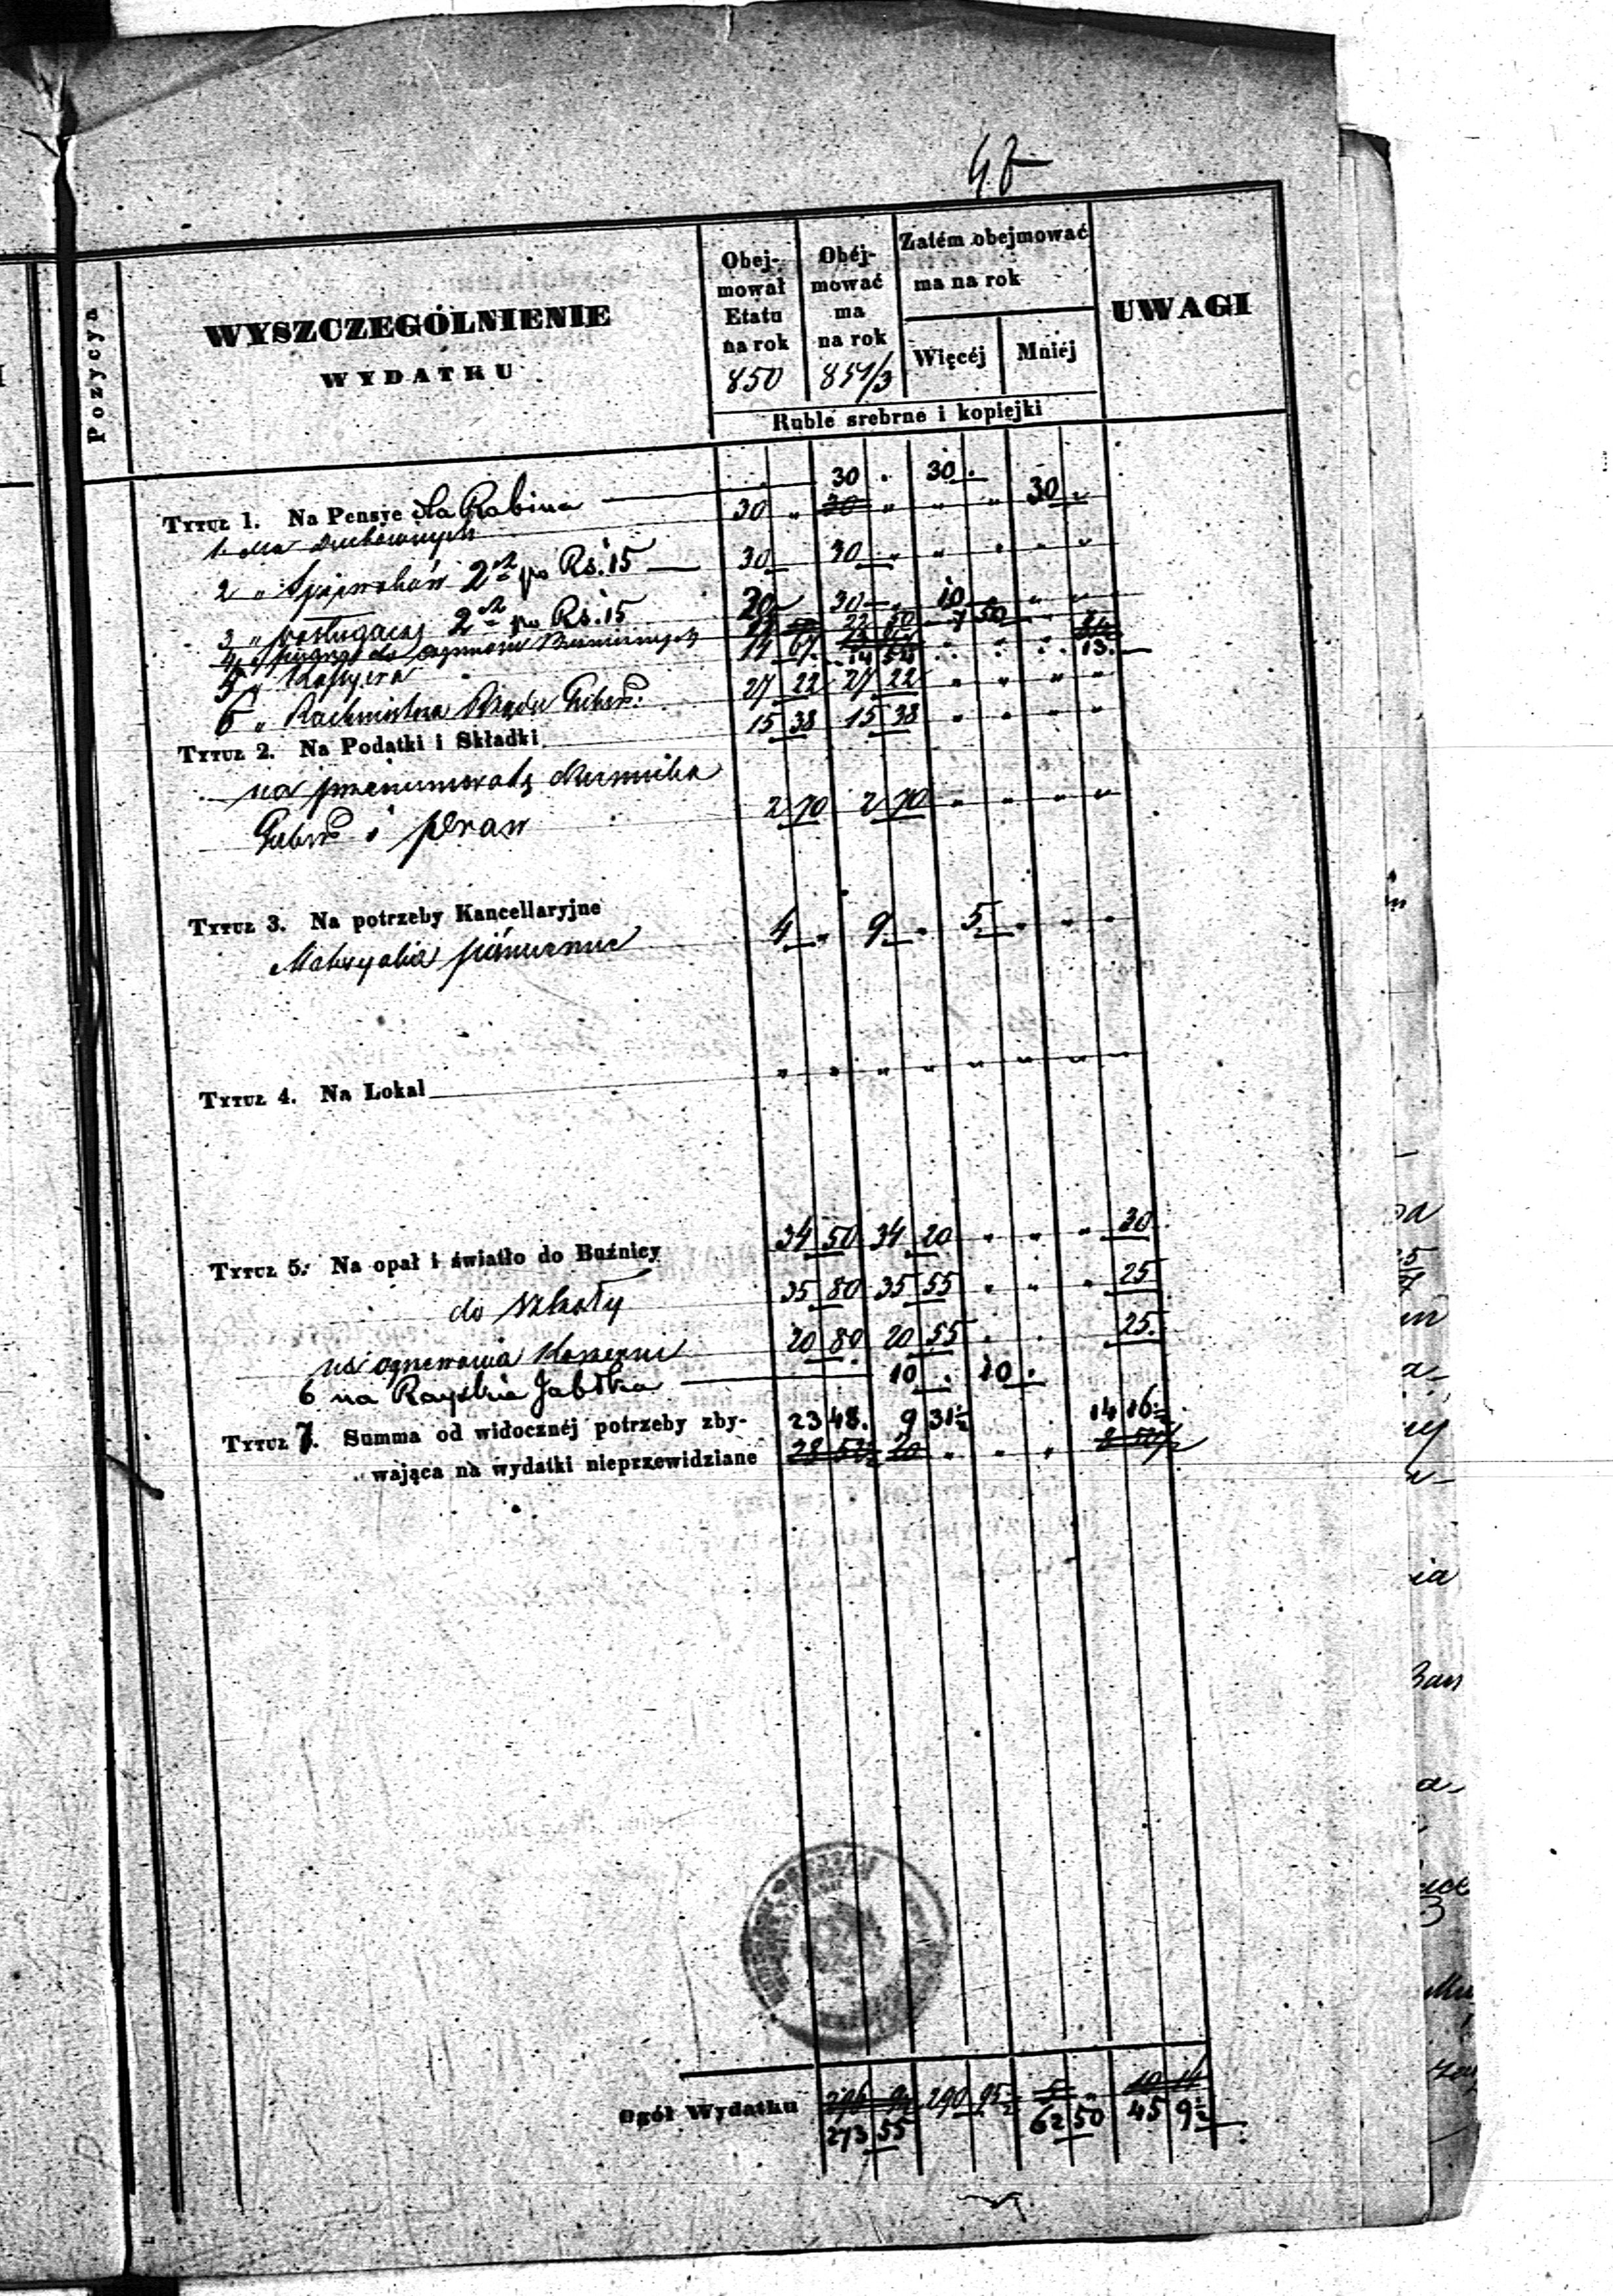 Pozycya
WYSZCZEGÓLNIENIE
WYDATKU
Obejmował Etatu na rok 850
Obéjmować ma na rok 851/3
Zatém obejmować ma na rok
Więcéj
Mniéj
UWAGI
Ruble srebrne i kopiejki
TYTUŁ 1. Na Pensye dla Rabina 30 . 30 .
1. dla Duchownych 30 " 30 " " " 30
2 " Śpiewaków 2ch po Rs. 15 30 30 " " " " "
3 " posługaczy 2ch po Rs. 15 20 30 10 " "
4 " 22 50 7 50
5 " Kassyera 14 67 14 54 13.
6 " Rachmistrza Rządu Gubern: 27 22 27 22 " " " "
TYTUŁ 2. Na Podatki i Składki 15 38 15 38 " " " "
na prenumeratę Dziennika
Gubern i praw 2 70 2 70 " " " "
TYTUŁ 3. Na potrzeby Kancellaryjne
Materyalia piśmienne 4 " 9 " 5 " " "
TYTUŁ 4. Na Lokal " " " " " " " "
TYTUŁ 5. Na opał i światło do Buźnicy 34 50 34 20 " " " 30
do szkoły 35 80 35 55 " " " 25
20 80 20 55 . . 25.
6 na Rayskie Jabłka 10 . 10 .
TYTUŁ 7. Summa od widocznéj potrzeby zby- 23 48. 9 31½ 14 16½
wająca na wydatki nieprzewidziane 28 52½ 20 " " "
Ogół Wydatku 290 95½ 5 "
273 55 62 50 45 9½